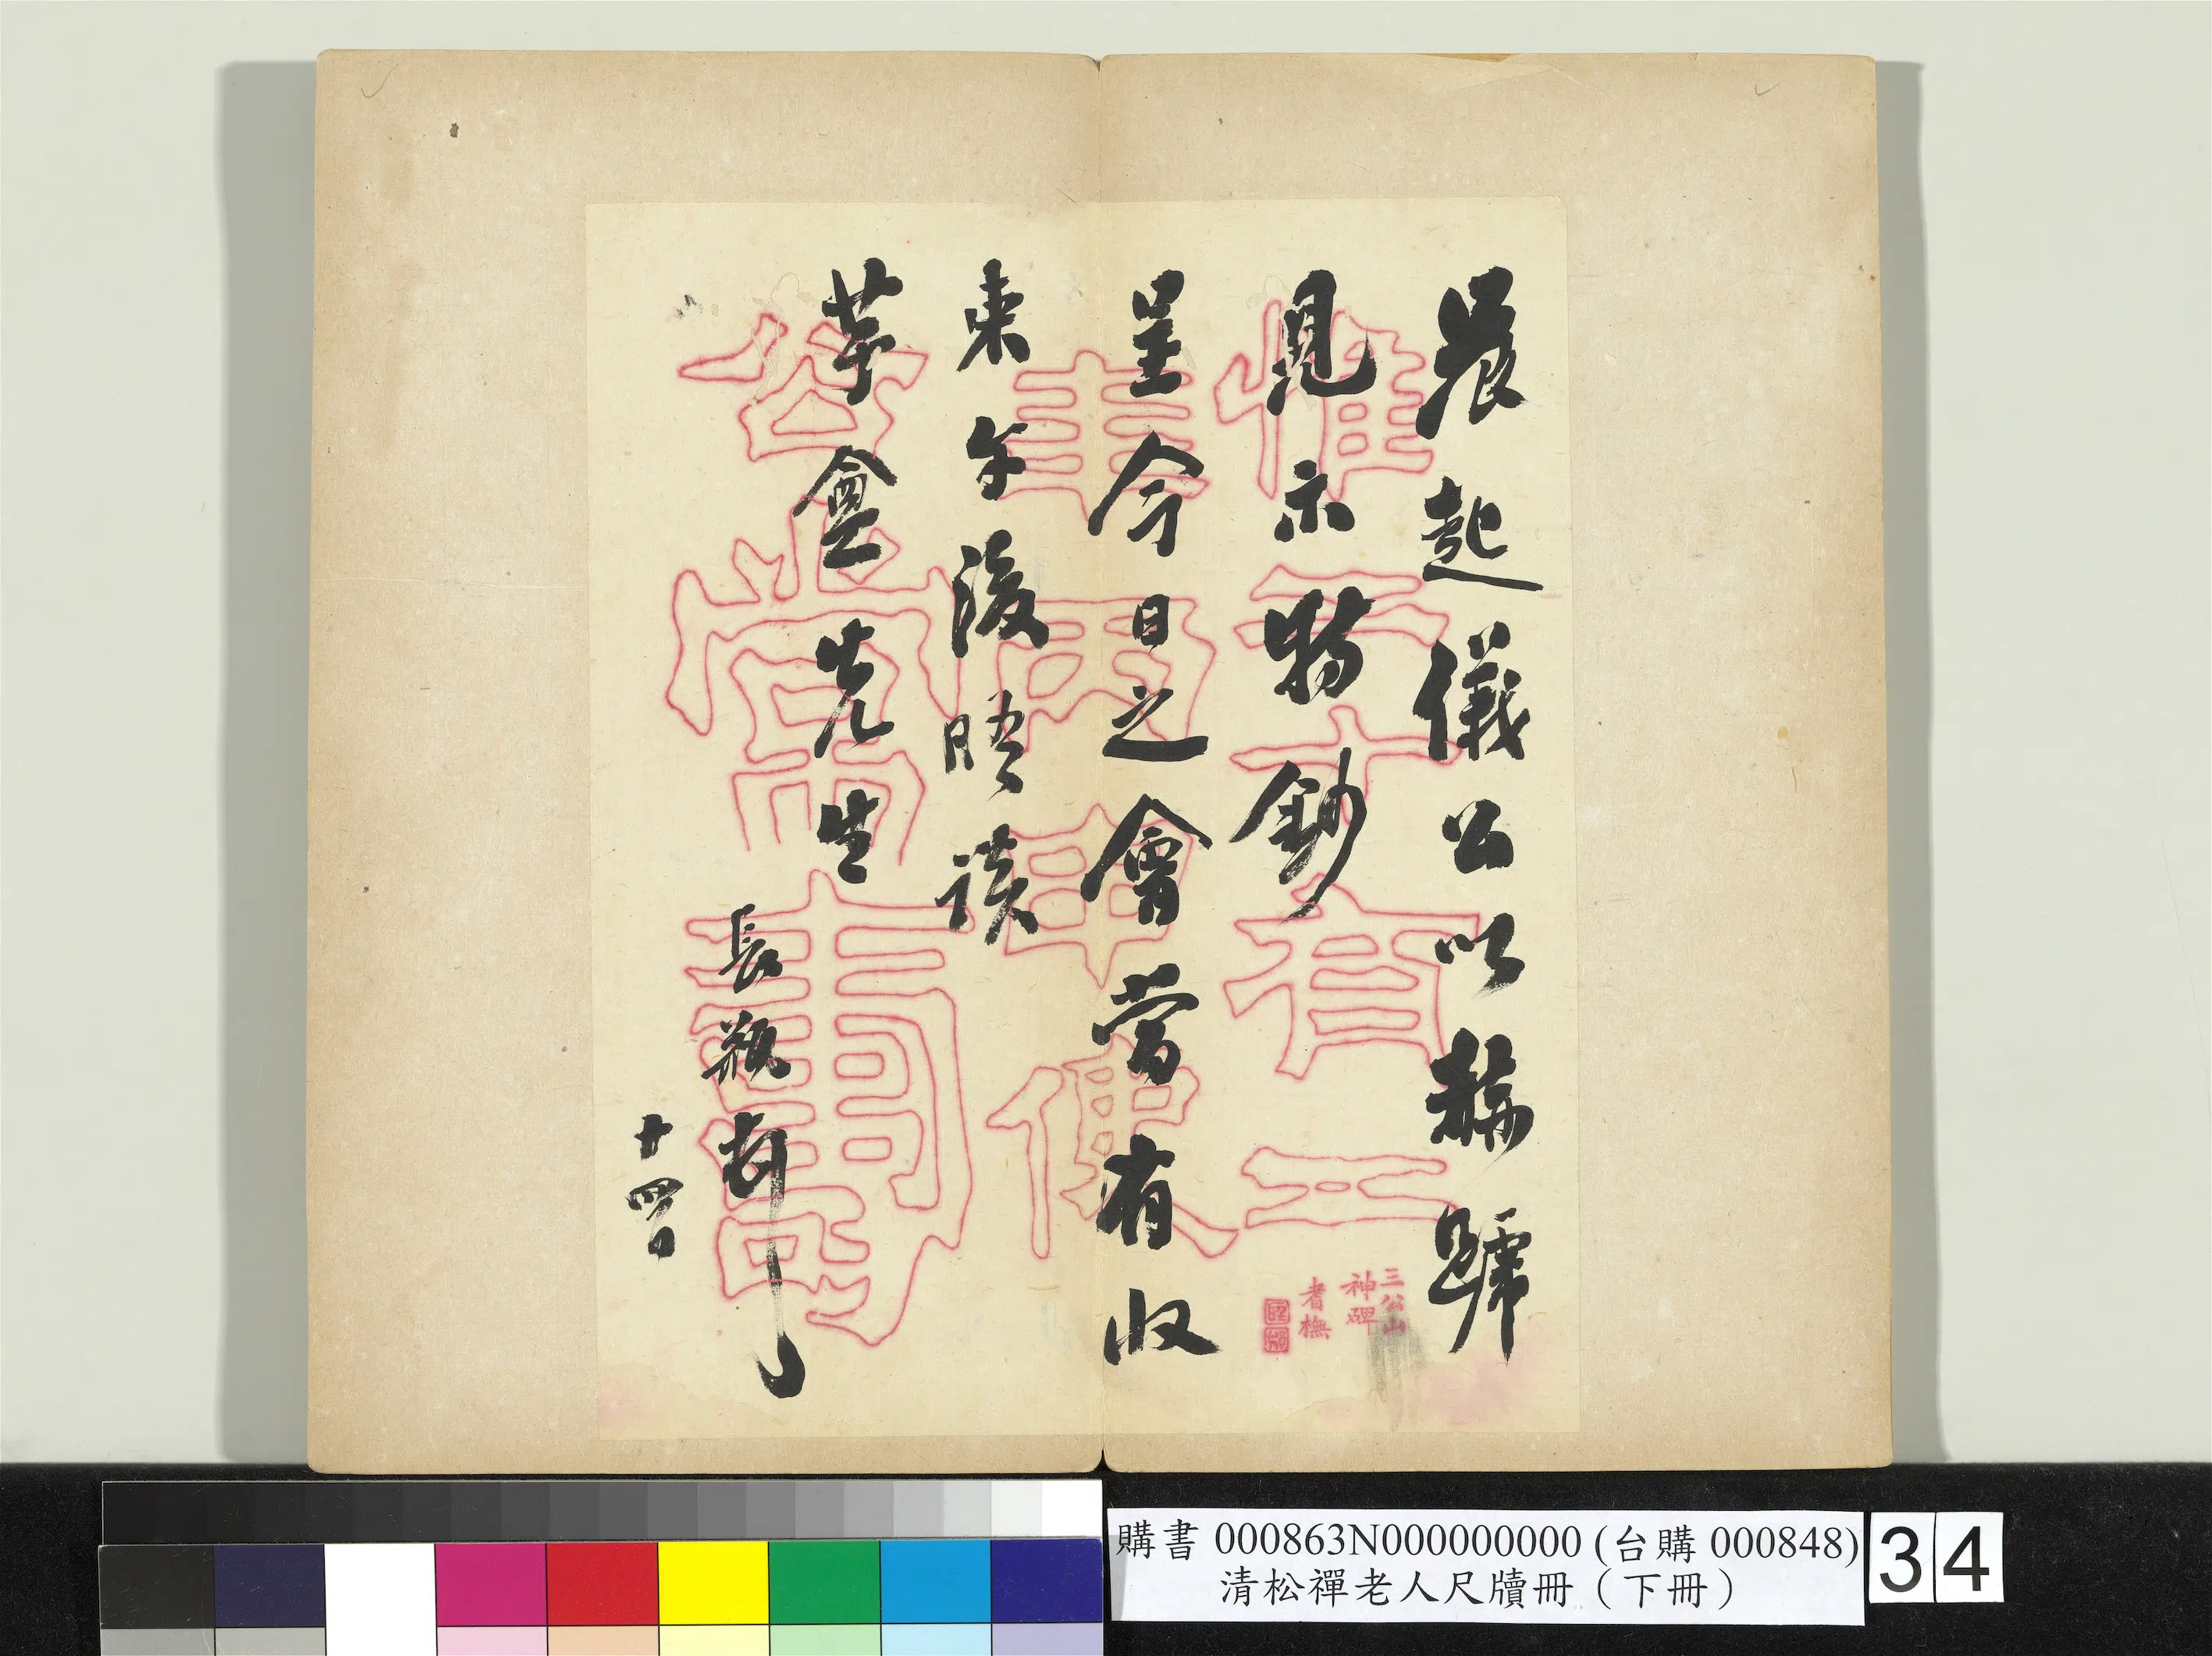 晨起儀公以稱號
見示特鈔
呈今日之會當有收
束午後晤談
芋盦先生
長瓶頓
廿四日
三公山
神碑
者橅
購書 000863N000000000 (台購 000848)
清松禪老人尺牘冊（下冊）
34